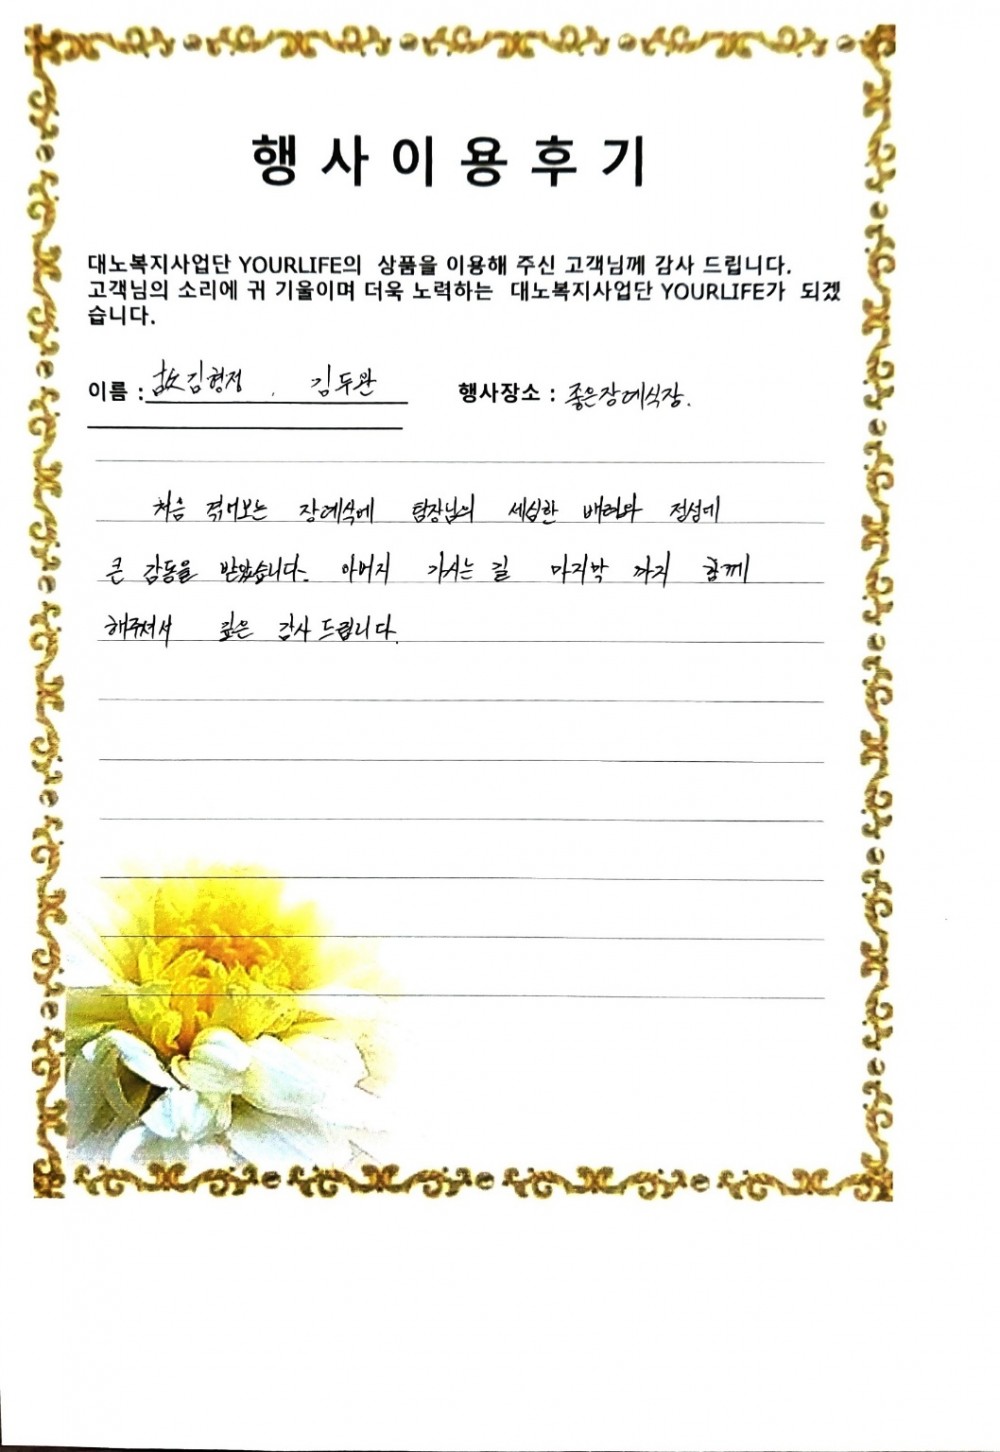 행사이용후기
대노복지사업단 YOURLIFE의 상품을 이용해 주신 고객님께 감사 드립니다.
고객님의 소리에 귀 기울이며 더욱 노력하는 대노복지사업단 YOURLIFE가 되겠
습니다.
이름 : 故김형정 , 김두완 행사장소 : 좋은장례식장.
처음 겪어보는 장례식에 팀장님의 세심한 배려와 정성에
큰 감동을 받았습니다. 아버지 가시는 길 마지막 까지 함께
해주셔서 깊은 감사 드립니다.